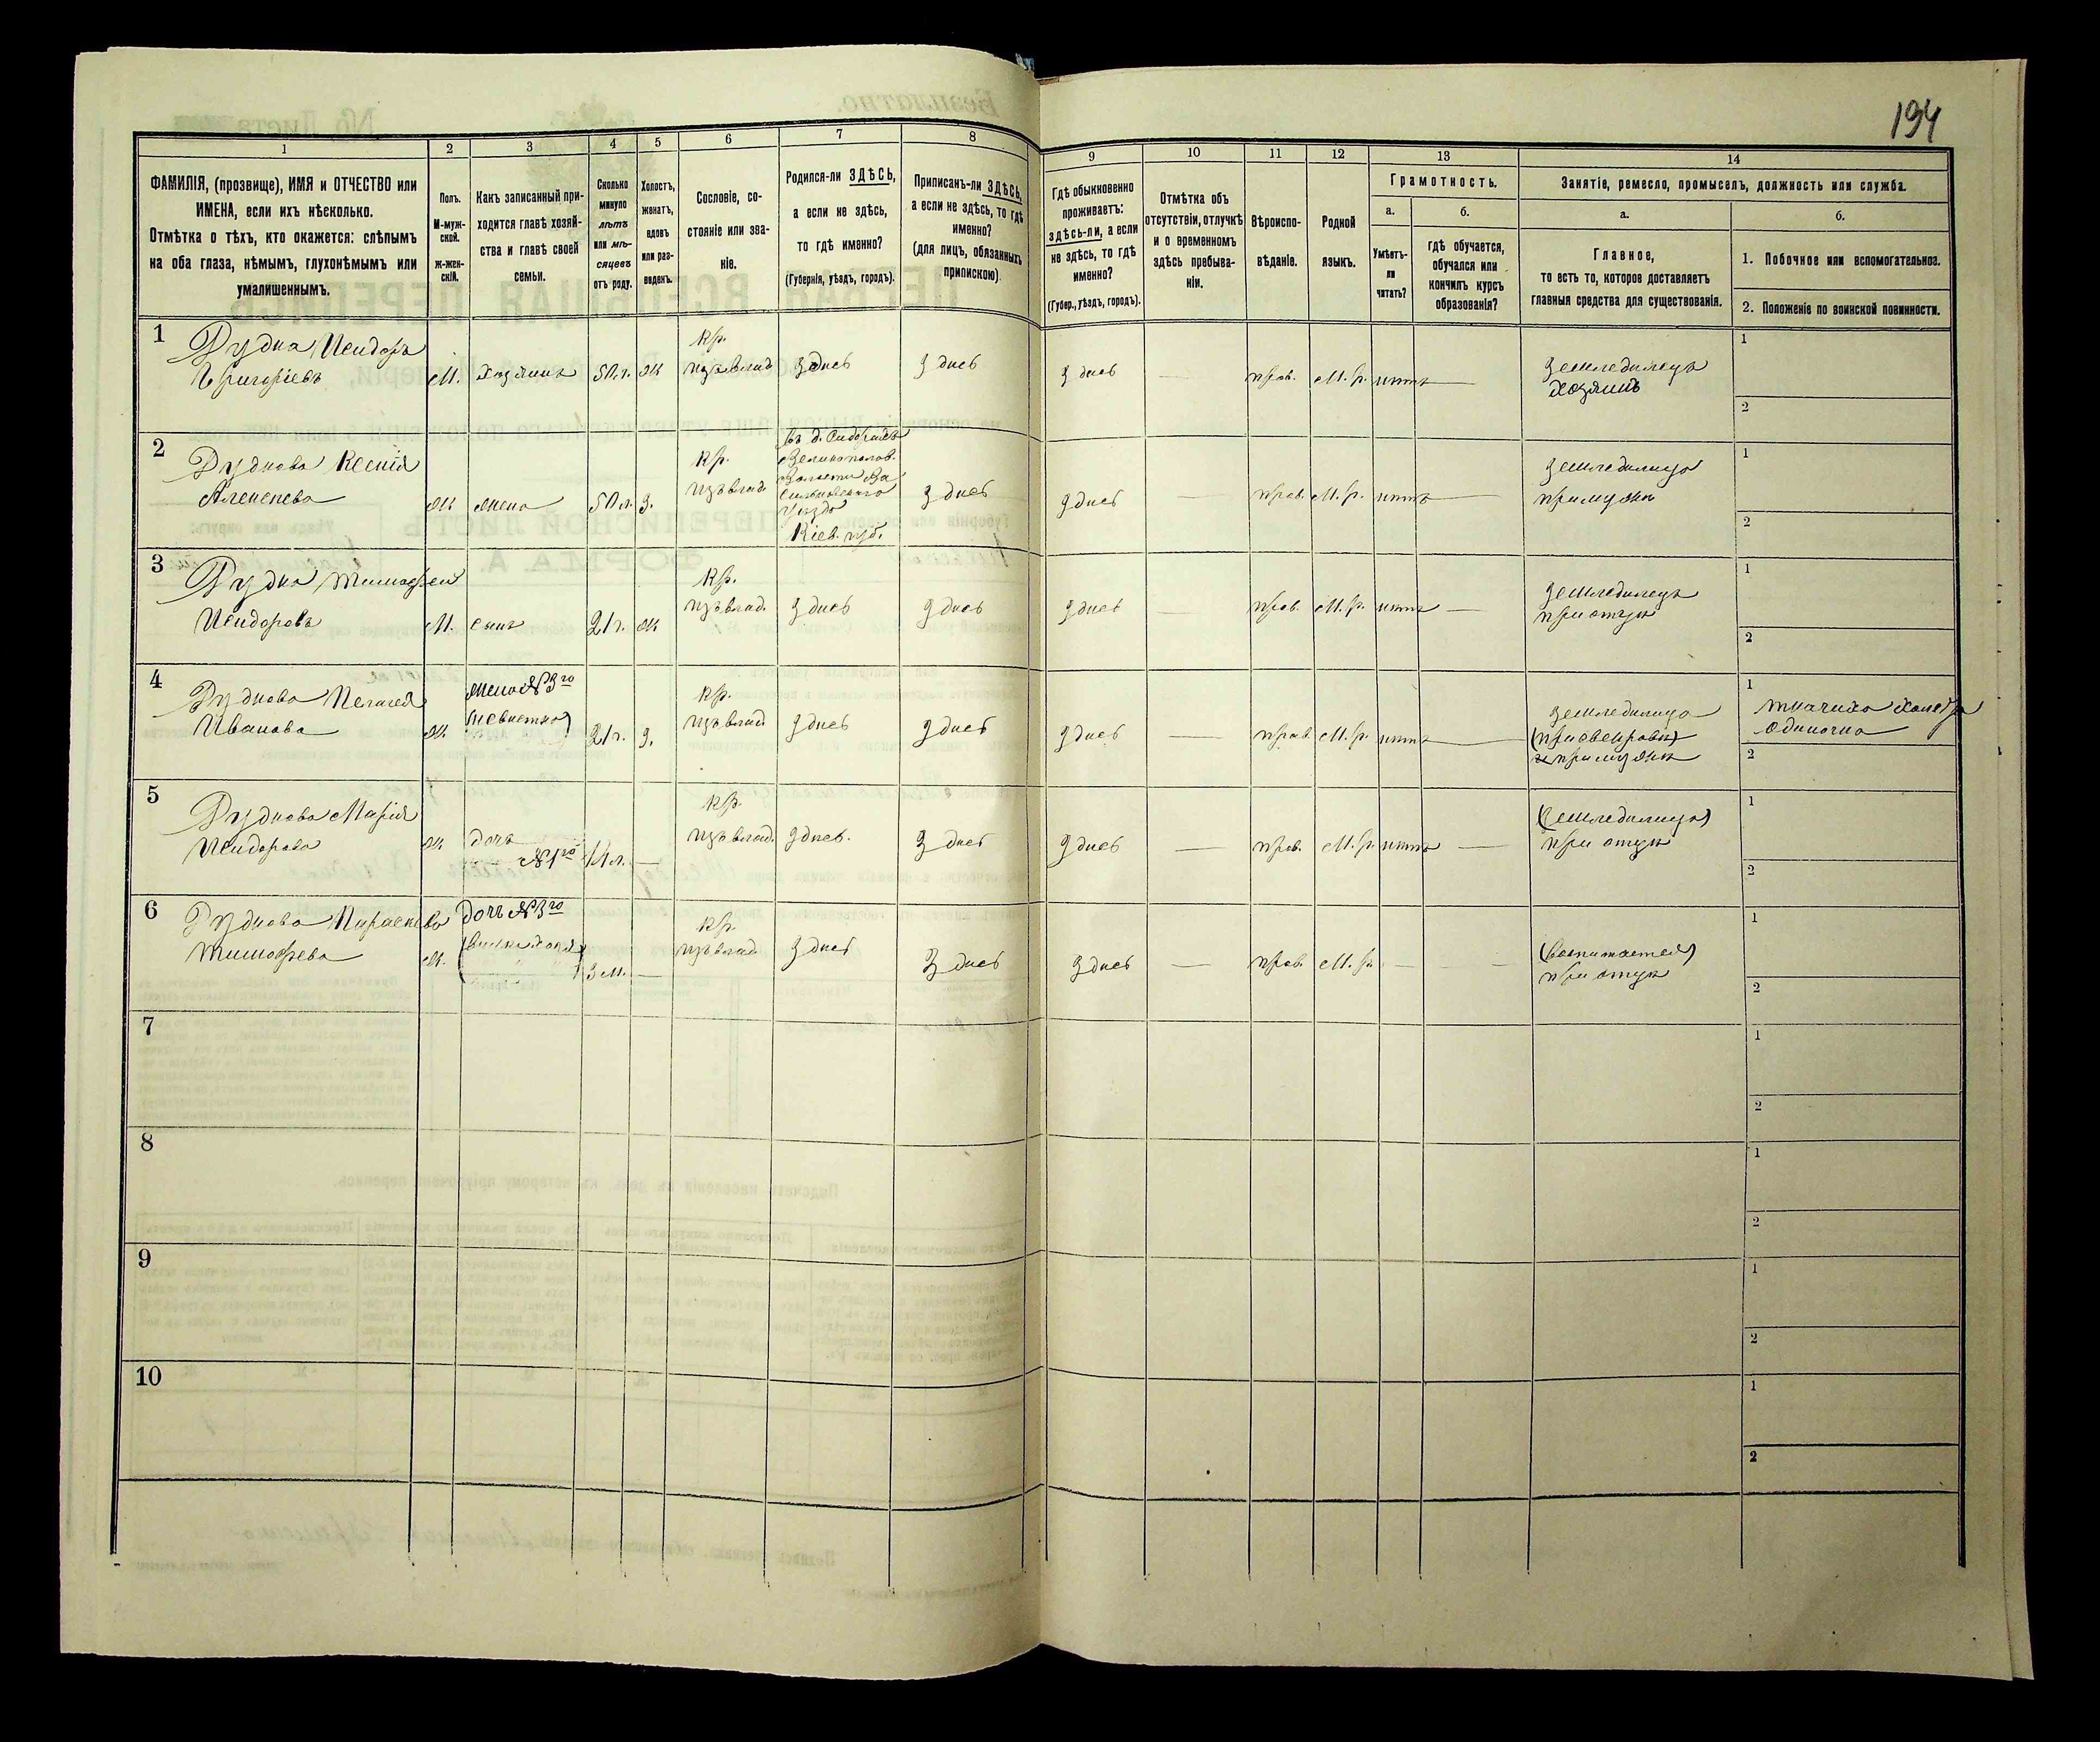 194
1 2 3 4 5 6 7 8 9 10 11 12 13 14
ФАМИЛІЯ, (прозвище), ИМЯ и ОТЧЕСТВО или
ИМЕНА, если ихъ нѣсколько.
Отмѣтка о тѣхъ, кто окажется: слѣпымъ
на оба глаза, нѣмымъ, глухонѣмымъ или
умалишеннымъ.
Полъ.
М-муж-
ской.
ж-жен-
скій.
Какъ записанный при-
ходится главѣ хозяй-
ства и главѣ своей
семьи.
Сколько
минуло
лѣтъ
или мѣ-
сяцевъ
отъ роду.
Холостъ,
женатъ,
вдовъ
или раз-
веденъ.
Сословіе, со-
стояніе или зва-
ніе.
Родился-ли ЗДѢСЬ,
а если не здѣсь,
то гдѣ именно?
(Губернія, уѣздъ, городъ).
Приписанъ-ли ЗДѢСЬ,
а если не здѣсь, то гдѣ
именно?
(для лицъ, обязанныхъ
припискою).
Гдѣ обыкновенно
проживаетъ:
здѣсь-ли, а если
не здѣсь, то гдѣ
именно?
(Губер., уѣздъ, городъ).
Отмѣтка объ
отсутствіи, отлучкѣ
и о временномъ
здѣсь пребыва-
ніи.
Вѣроиспо-
вѣданіе.
Родной
языкъ.
Грамотность.
а.
Умѣетъ-
ли
читать?
б.
гдѣ обучается,
обучался или
кончилъ курсъ
образованія?
Занятіе, ремесло, промыселъ, должность или служба.
а.
Главное,
то есть то, которое доставляетъ
главныя средства для существованія.
б.
1. Побочное или вспомогательное.
2. Положеніе по воинской повинности.
1
Рудка Исидоръ
Григоріевъ
М.
хозяинъ
50 л.
ж
кр.
изъ влад.
здѣсь
здѣсь
здѣсь
—
прав.
М. р.
нѣтъ
—
земледѣлецъ
хозяинъ
1
2
2
Рудкова Ксенія
Алексѣева
ж
жена
50 л.
з.
кр.
изъ влад.
въ д.
Волости Ва
сильковскаго
уѣзда
Кіев. губ.
здѣсь
здѣсь
—
прав.
М. р.
нѣтъ
—
земледѣлица
при мужѣ
1
2
3
Рудка Тимофей
Исидоровъ
М.
сынъ
21 г.
ж
кр.
изъ влад.
здѣсь
здѣсь
здѣсь
—
прав.
М. р.
нѣтъ
—
земледѣлецъ
при отцѣ
1
2
4
Рудкова Пелагея
Иванова
ж.
жена №3го
(невѣстка)
21 г.
з.
кр.
изъ влад
здѣсь
здѣсь
здѣсь
—
прав.
М. р.
нѣтъ
—
земледѣлица
(при свекровѣ)
при мужѣ
1
ткачиха холста
одиночка
2
5
Рудкова Марія
Исидорова
ж
дочь
№1го
14 л.
—
кр.
изъ влад.
здѣсь.
здѣсь
здѣсь
—
прав.
М. р.
нѣтъ
—
(земледѣлица)
при отцѣ
1
2
6
Рудкова Параскева
Тимофѣева
ж.
дочь №3го
3 м.
—
кр.
изъ влад.
здѣсь
здѣсь
здѣсь
—
прав.
М. р.
—
—
(воспитается)
при отцѣ
1
2
7
1
2
8
1
2
9
1
2
10
1
2